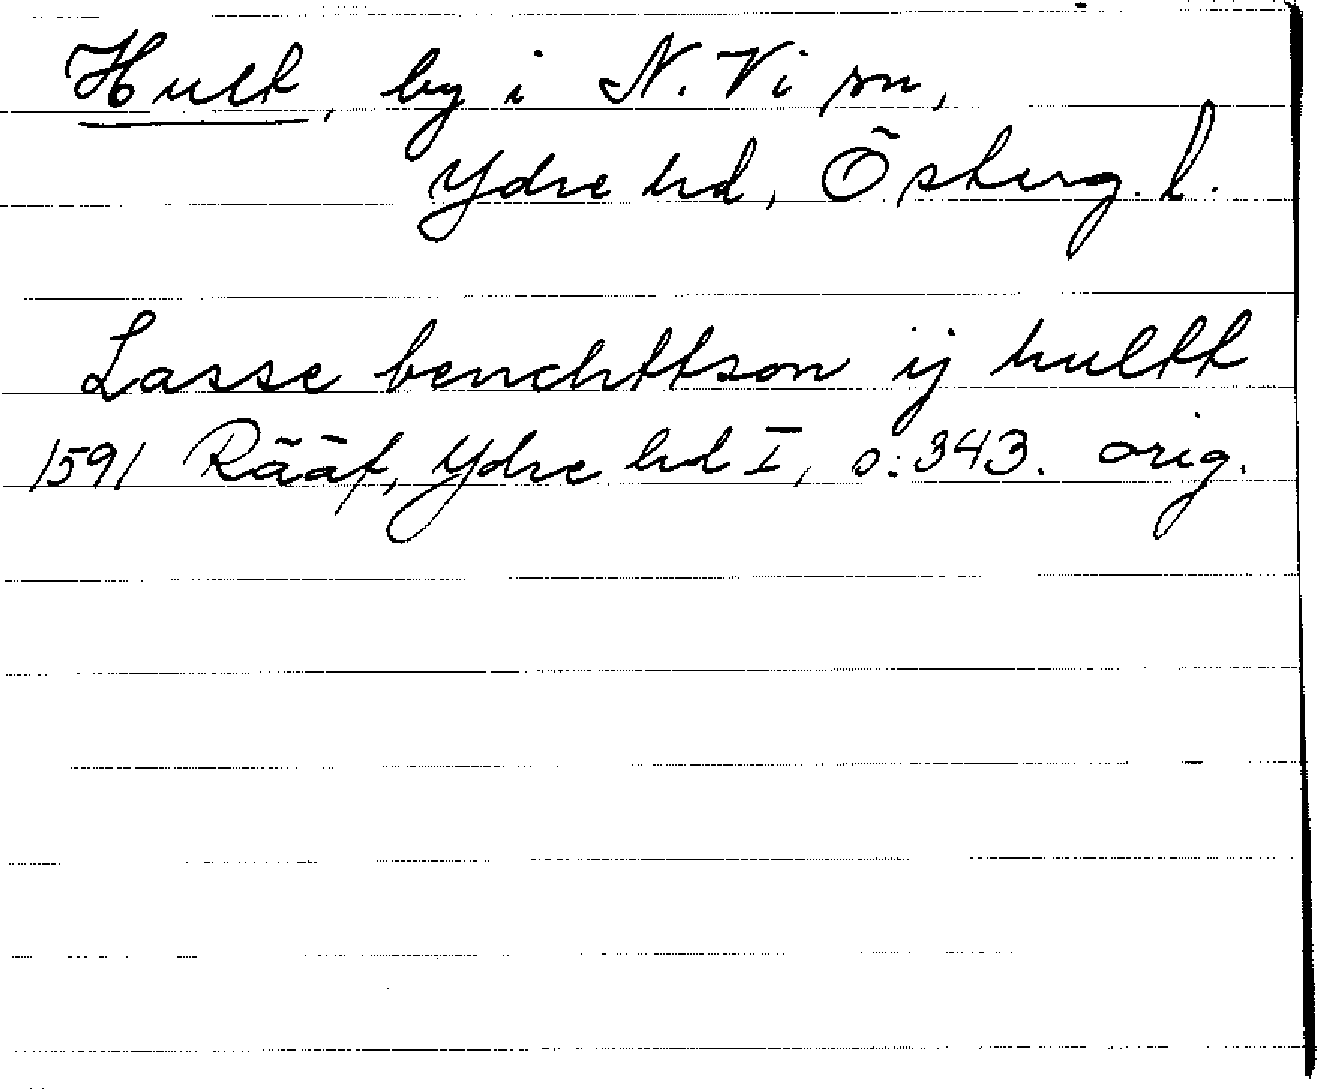 Hult, by i N. Vi sn,
Ydre hd, Östverg. l.
Lasse benchttson ij hultt
1591 Rääf, Ydre hd I, s. 343. orig.